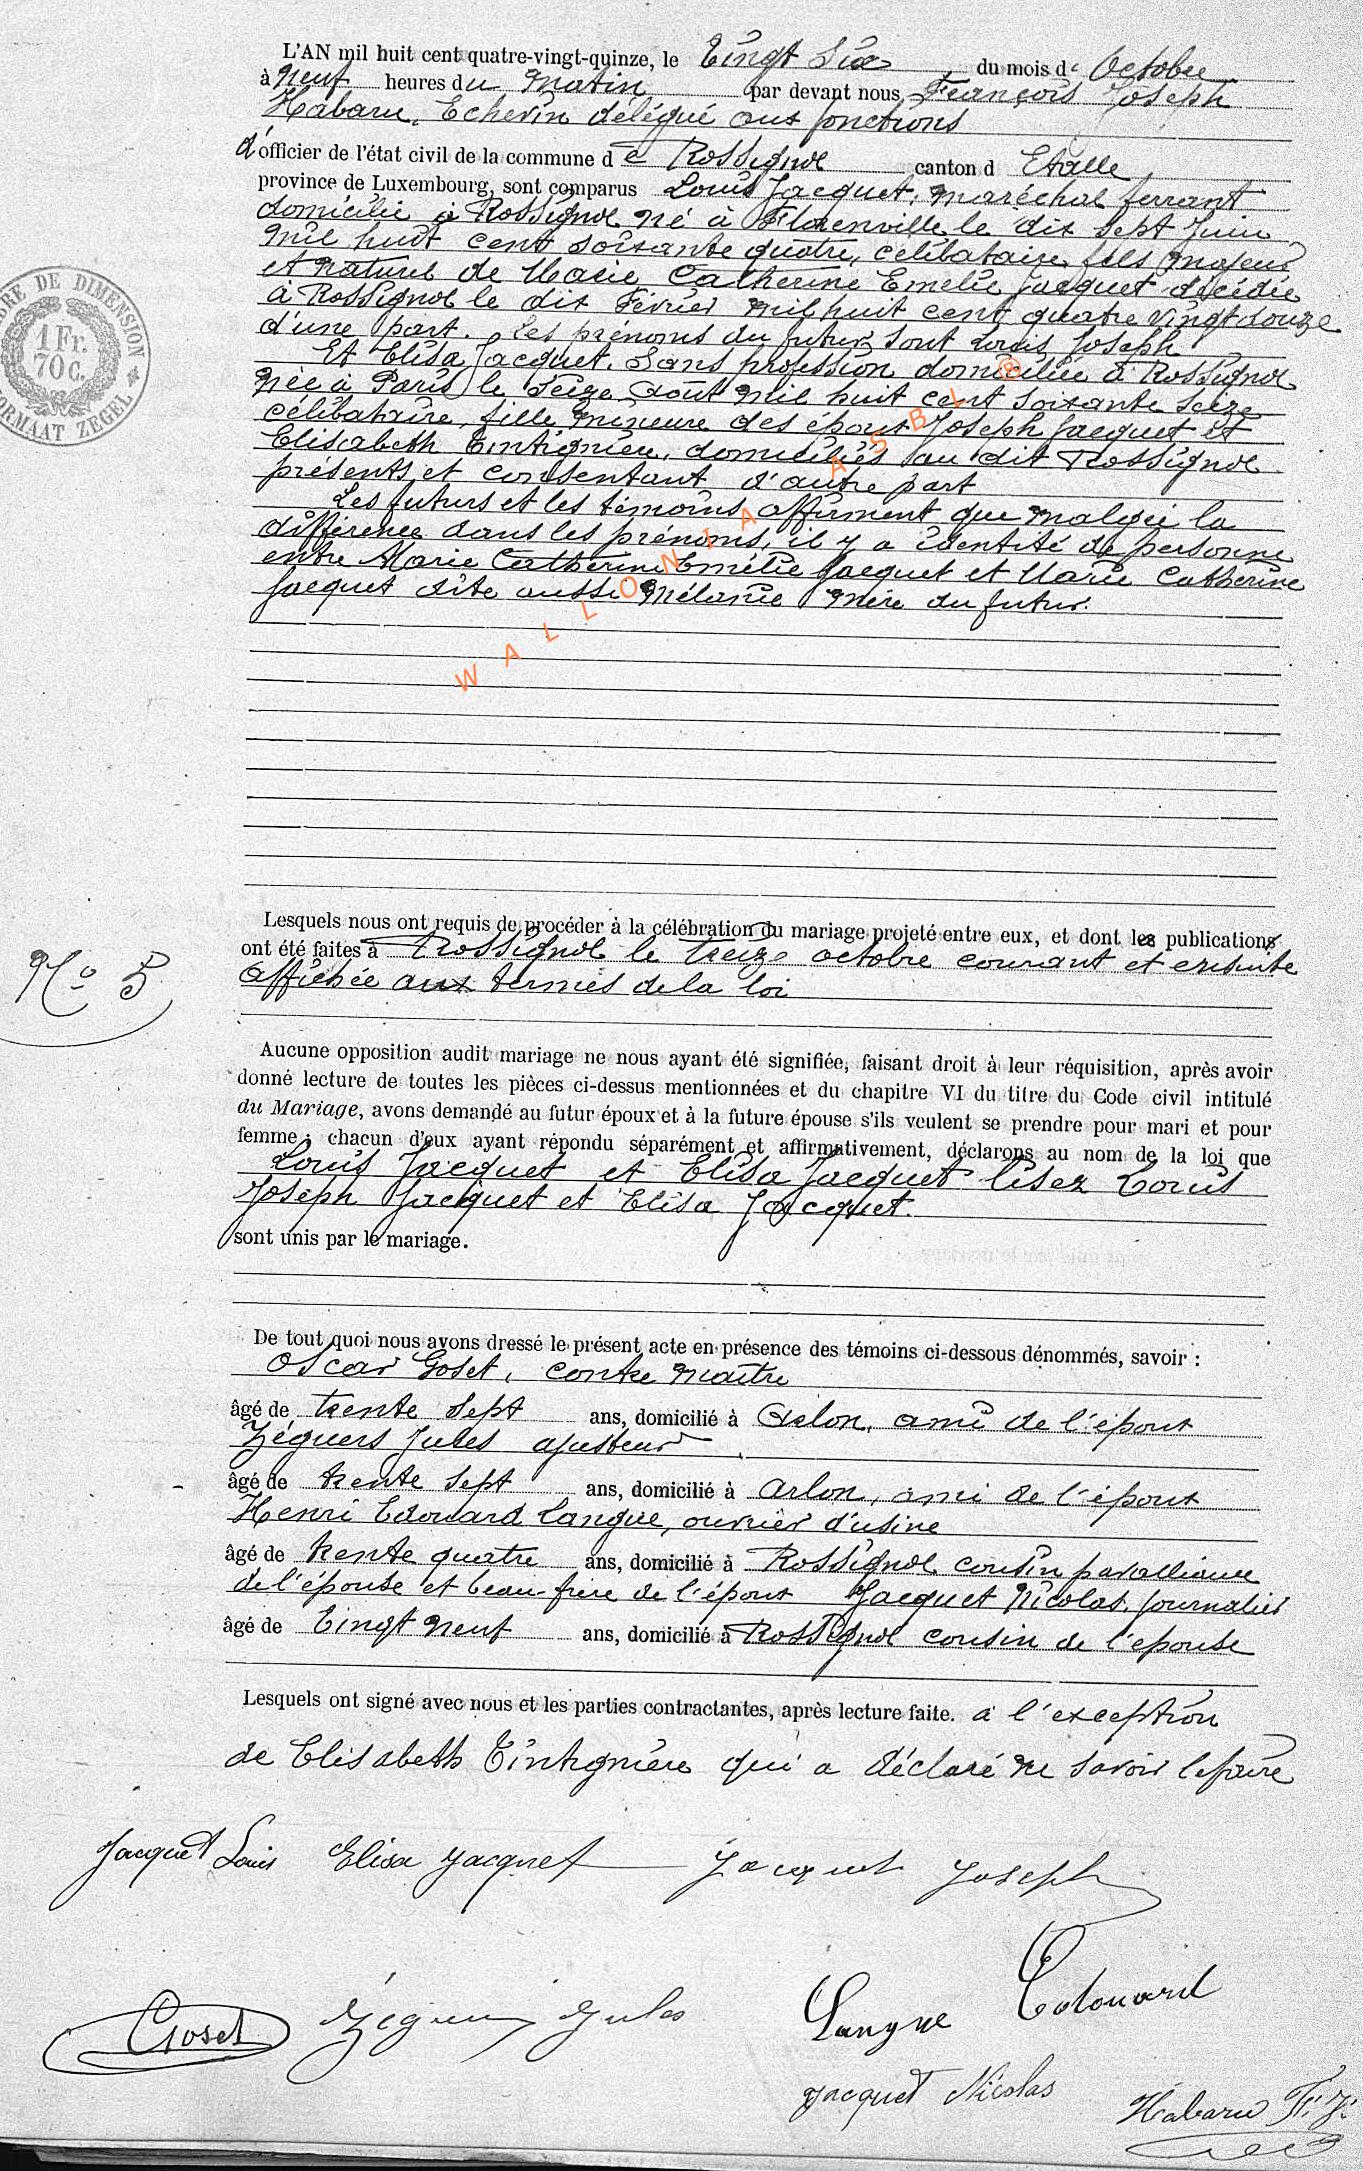 L'AN mil huit cent quatre-vingt-quinze, le Vingt Six du mois de Octobre
à Neuf heures du Matin par devant nous François Joseph
Habaru, Echevin délégué aux fonctions
d'officier de l'état civil de la commune de Rossignol canton d Etalle
province de Luxembourg, sont comparus Louis Jacquet, maréchal ferrant
domicilié à Rossignol né à Florenville le dix sept Juin
mil huit cent soixante quatre, célibataire, fils majeur
et naturel de Marie Catherine Emelie Jacquet décédée
à Rossignol le dix Février mil huit cent quatre vingt douze
d'une part. Les prénoms du futur sont Louis Joseph
Et Elisa Jacquet, Sans profession domiciliée à Rossignol
née à Paris le Seize Août mil huit cent soixante seize
célibataire, fille mineure des époux Joseph Jacquet et
Elisabeth Tintignière, domiciliés au dit Rossignol
présents et consentant d'autre part
Les futurs et les témoins affirment que malgré la
différence dans les prénoms, il y a identité de personne
entre Marie Catherine Emélie Jacquet et Marie Catherine
Jacquet dite aussi Mélanie mère du futur.
WALLONIA ASBL ®
TIMBRE DE DIMENSION
1 Fr.
70 C.
FORMAAT ZEGEL
Lesquels nous ont requis de procéder à la célébration du mariage projeté entre eux, et dont les publications
ont été faites à Rossignol le treize octobre courant et ensuite
affichée aux termes de la loi
No 5
Aucune opposition audit mariage ne nous ayant été signifiée, faisant droit à leur réquisition, après avoir
donné lecture de toutes les pièces ci-dessus mentionnées et du chapitre VI du titre du Code civil intitulé
du Mariage, avons demandé au futur époux et à la future épouse s'ils veulent se prendre pour mari et pour
femme ; chacun d'eux ayant répondu séparément et affirmativement, déclarons au nom de la loi que
Louis Jacquet et Elisa Jacquet lisez Louis
Joseph Jacquet et Elisa Jacquet.
sont unis par le mariage.
De tout quoi nous avons dressé le présent acte en présence des témoins ci-dessous dénommés, savoir :
Oscar Goset, contre maître
âgé de trente sept ans, domicilié à Arlon, ami de l'époux
Zéguers Jules ajusteur
âgé de trente sept ans, domicilié à Arlon, ami de l'époux
Henri Edouard Langue, ouvrier d'usine
âgé de trente quatre ans, domicilié à Rossignol cousin par alliance
de l'épouse et beau-frère de l'époux Jacquet Nicolas, journalier
âgé de Vingt neuf ans, domicilié à Rossignol cousin de l'épouse
Lesquels ont signé avec nous et les parties contractantes, après lecture faite. à l'exception
de Elisabeth Tintignière qui a déclaré ne savoir le faire
Jacquet Louis Elisa Jacquet Jacquet Joseph
Goset Zéguers Jules Langue Edouard
Jacquet Nicolas Habaru F. J.